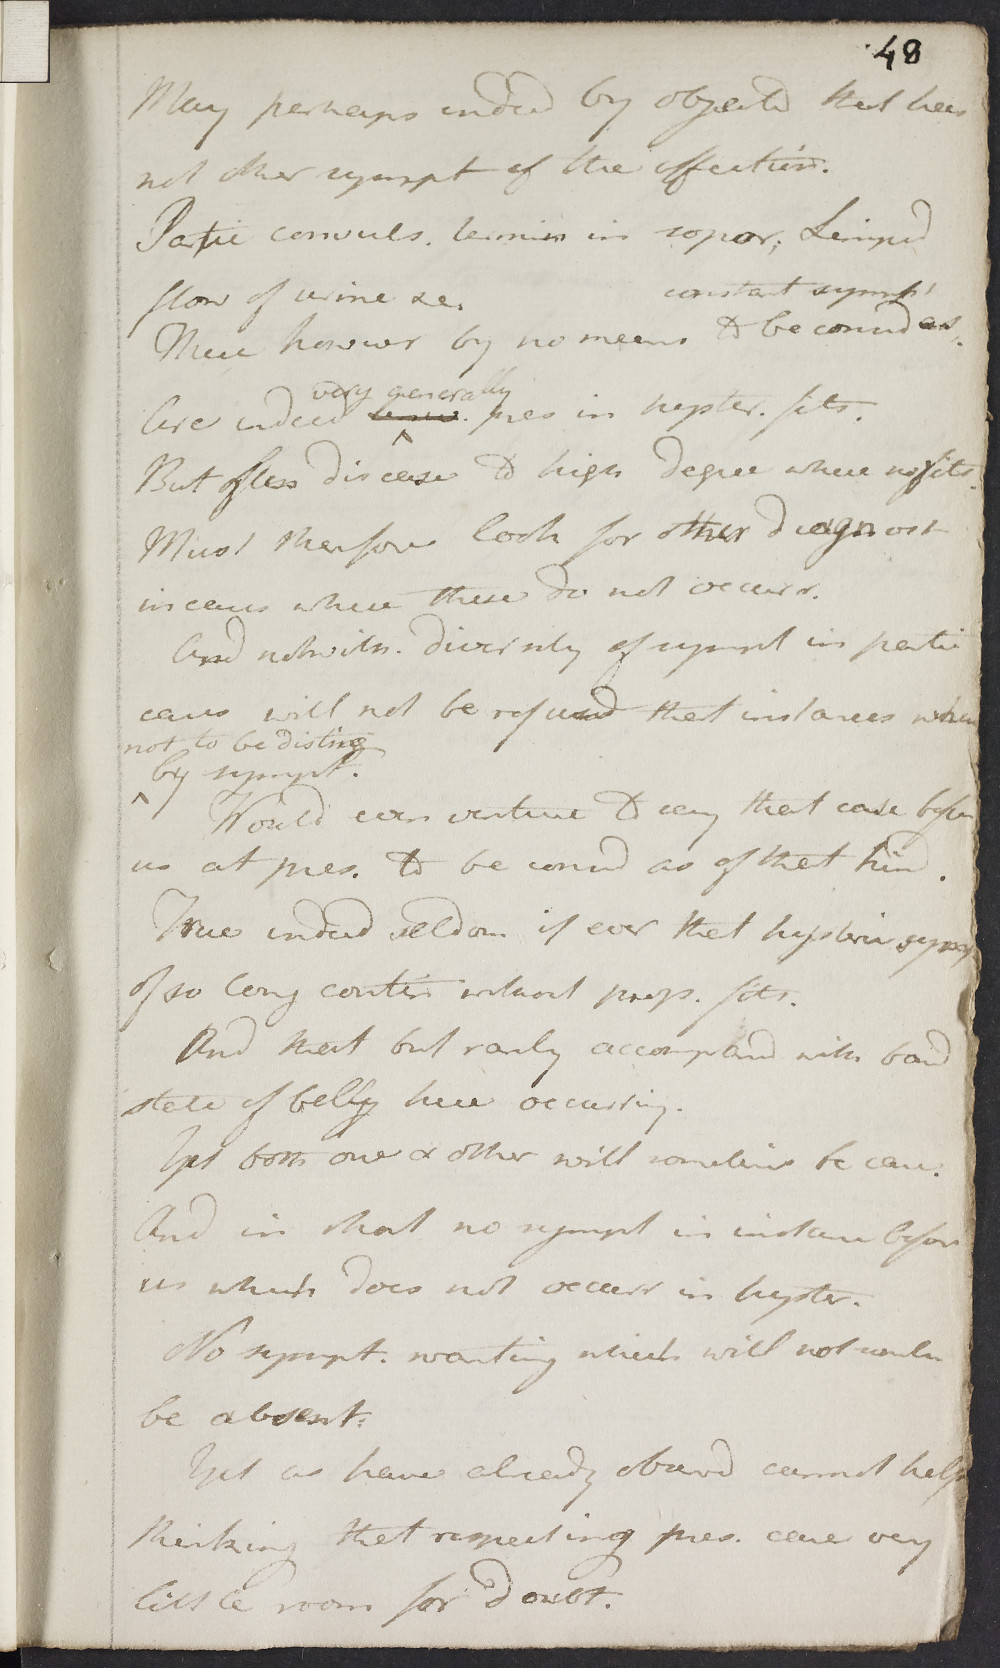 48
May perhaps indeed by objectd that here
not other sympt of the affection.
Partic convuls. termin in sopor; Limpid
flow of urine &c.
constant sympt
These however by no means to be considd as,
very generally
Are indeed pres in hyster. fits.
But ofless disease to high degree where no fits.
Must therefore look for other diagnost
in cases where these do not occurr.
And notwith. diversity of sympt in partic
cases will not be refused that instances where
not to be disting
by sympt.
Would even venture to say that case before
us at pres. to be considd as of that kind.
True indeed seldom if ever that hysteric sympt
of so long contin without prop. fits.
And that but rarely accompand with
state of belly here occurring.
Yet both one & other will sometimes be case.
And in short no sympt in instance before
us which does not occurr in hyster.
No sympt. wanting which will not
be absent.
Yet as have already observd cannot help
thinking that respecting pres. case very
little room for doubt.